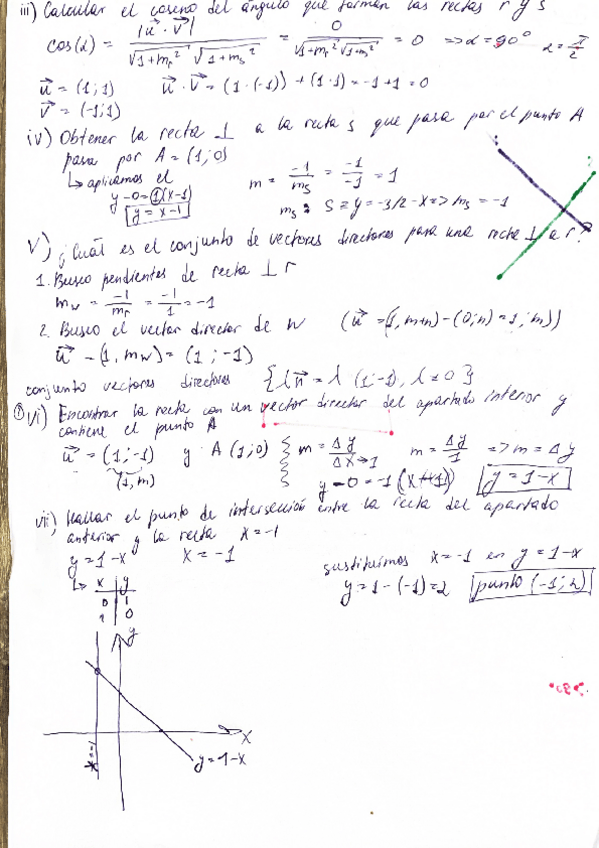 iii) Calcular el coseno del ángulo que forman las rectas r y s
cos(α) = |u⃗ · v⃗| / (√1+mᵣ² √1+mₛ²) = 0 / (√1+mᵣ² √1+mₛ²) = 0 => α = 90° α = π/2
u⃗ = (1;1) u⃗ · v⃗ = (1·(-1)) + (1·1) = -1+1 = 0
v⃗ = (-1;1)
iv) Obtener la recta ⊥ a la recta s que pasa por el punto A
pasa por A = (1;0)
↳ aplicamos el
m = -1/mₛ = -1/-1 = 1
y-0=1(x-1)
y = x-1
mₛ: s ≡ y = -3/2 - x => mₛ = -1
v) ¿Cuál es el conjunto de vectores directores para una recta ⊥ a r?
1. Busco pendientes de recta ⊥ r
m_w = -1/mᵣ = -1/1 = -1
2. Busco el vector director de w (u⃗ = (1, m+n) - (0;n) = 1; m))
u⃗ - (1, m_w) = (1; -1)
conjunto vectores directores {λu⃗ = λ (1;-1), λ ≠ 0}
① vi) Encontrar la recta con un vector director del apartado interior y
contiene el punto A
u⃗ = (1;-1) y A (1;0) m = Δy/Δx→1 m = Δy/1 => m = Δy
(1, m) y-0 = -1 y = 1-x
vii) Hallar el punto de intersección entre la recta del apartado
anterior y la recta x = -1
y = 1-x x = -1
sustituimos x = -1 en y = 1-x
y = 1-(-1) = 2 punto (-1; 2)
x y
0 1
1 0
y
x
x=-1
y = 1-x